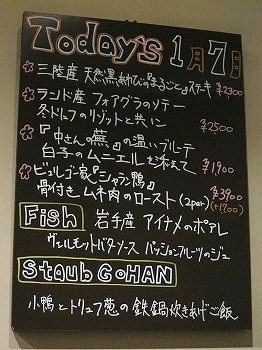 Today's 1月7日
三陸産 天然黒あわびの『まるごと』ステーキ ¥2300
ランド産 フォアグラのソテー
冬トリュフのリゾットと共に ¥2500
『中さんの蕪』の温いブルーテ
白子のムニエルを添えて ¥1,900
ビュルゴー家『シャラン鴨』 ¥3900
骨付きムネ肉のロースト (2per) (+1900)
Fish 岩手産 アイナメのポアレ
ヴェルモットバターソース パッションフルーツのジュ
Staub GOHAN
小鴨とトリュフ葱の鉄鍋炊きあげご飯